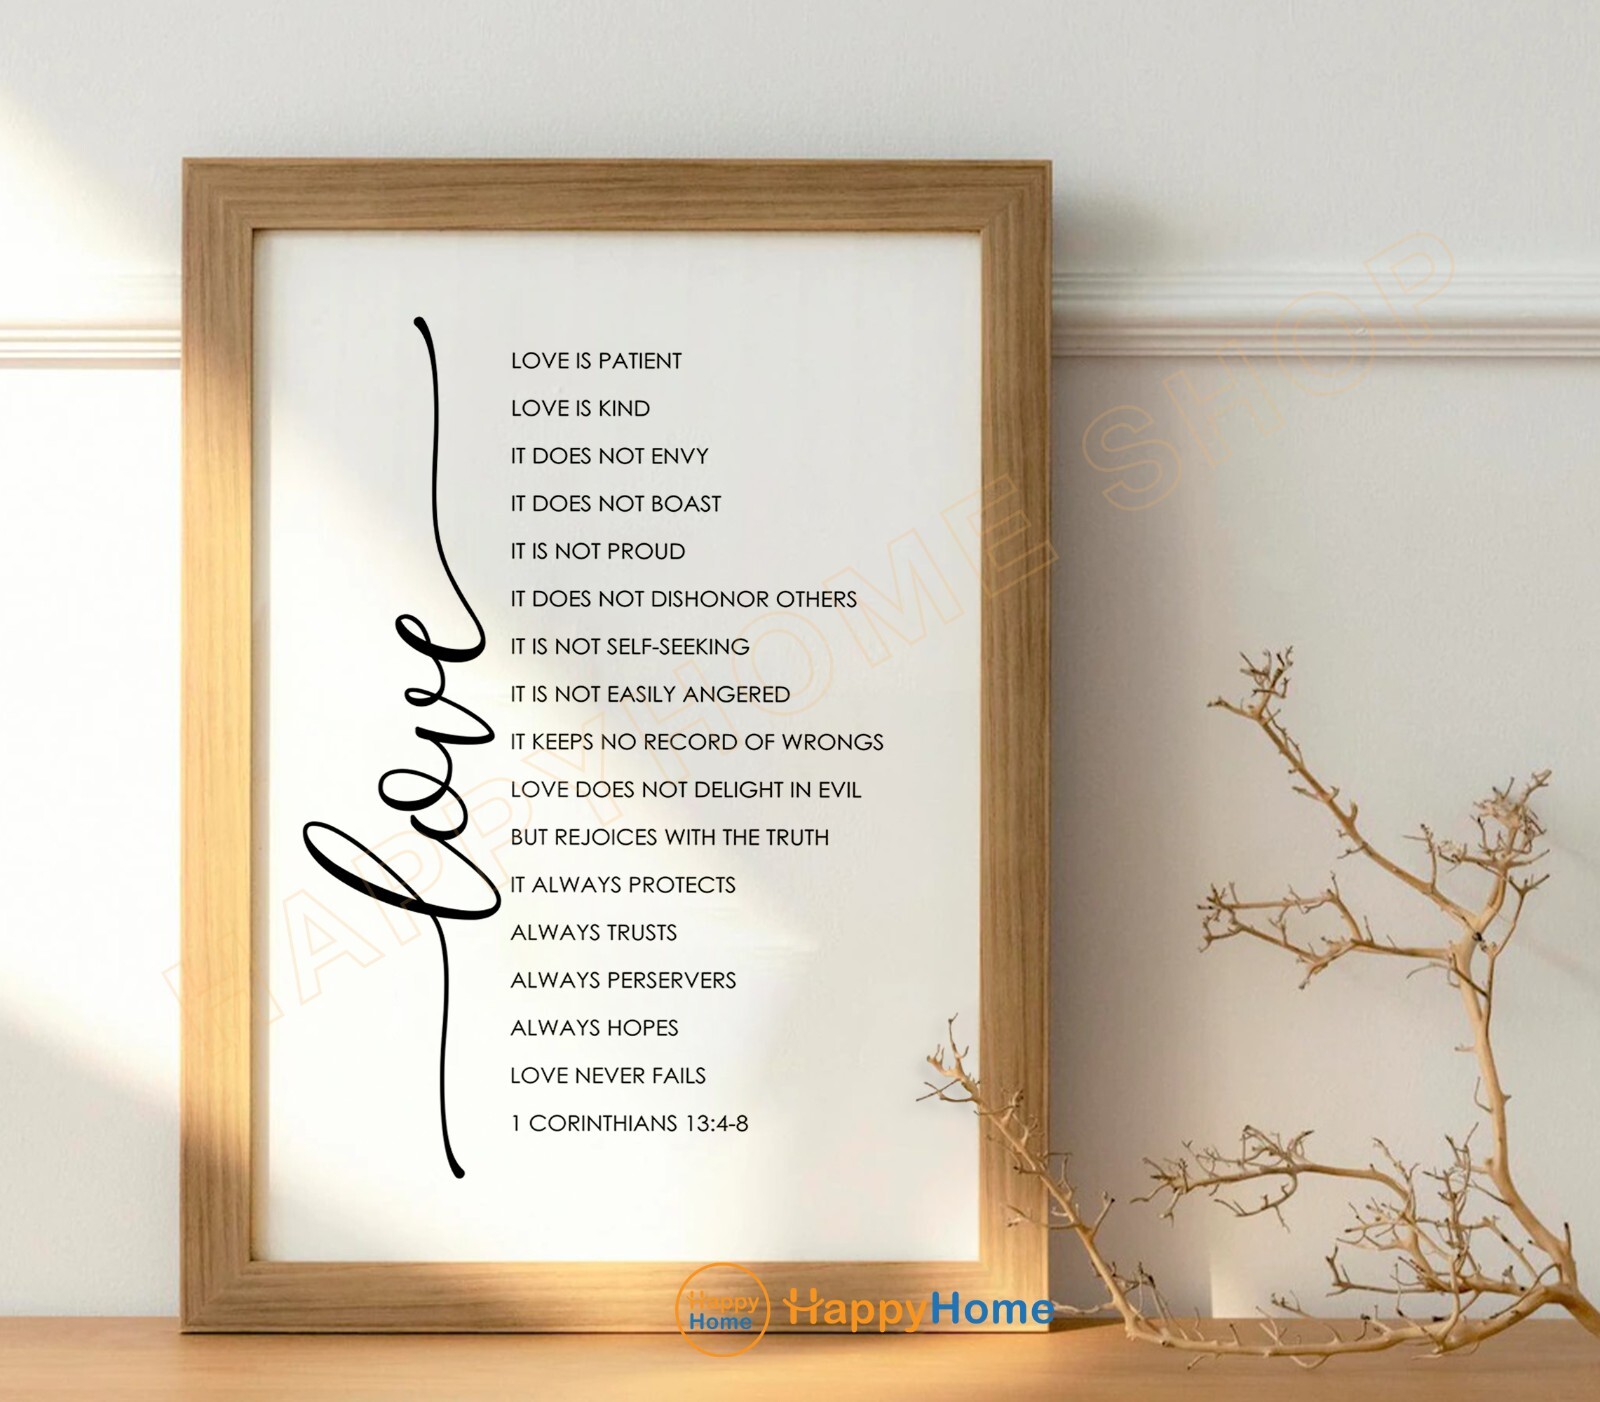 love
LOVE IS PATIENT
LOVE IS KIND
IT DOES NOT ENVY
IT DOES NOT BOAST
IT IS NOT PROUD
IT DOES NOT DISHONOR OTHERS
IT IS NOT SELF-SEEKING
IT IS NOT EASILY ANGERED
IT KEEPS NO RECORD OF WRONGS
LOVE DOES NOT DELIGHT IN EVIL
BUT REJOICES WITH THE TRUTH
IT ALWAYS PROTECTS
ALWAYS TRUSTS
ALWAYS PERSERVERS
ALWAYS HOPES
LOVE NEVER FAILS
1 CORINTHIANS 13:4-8
HAPPYHOME SHOP
Happy
Home
HappyHome